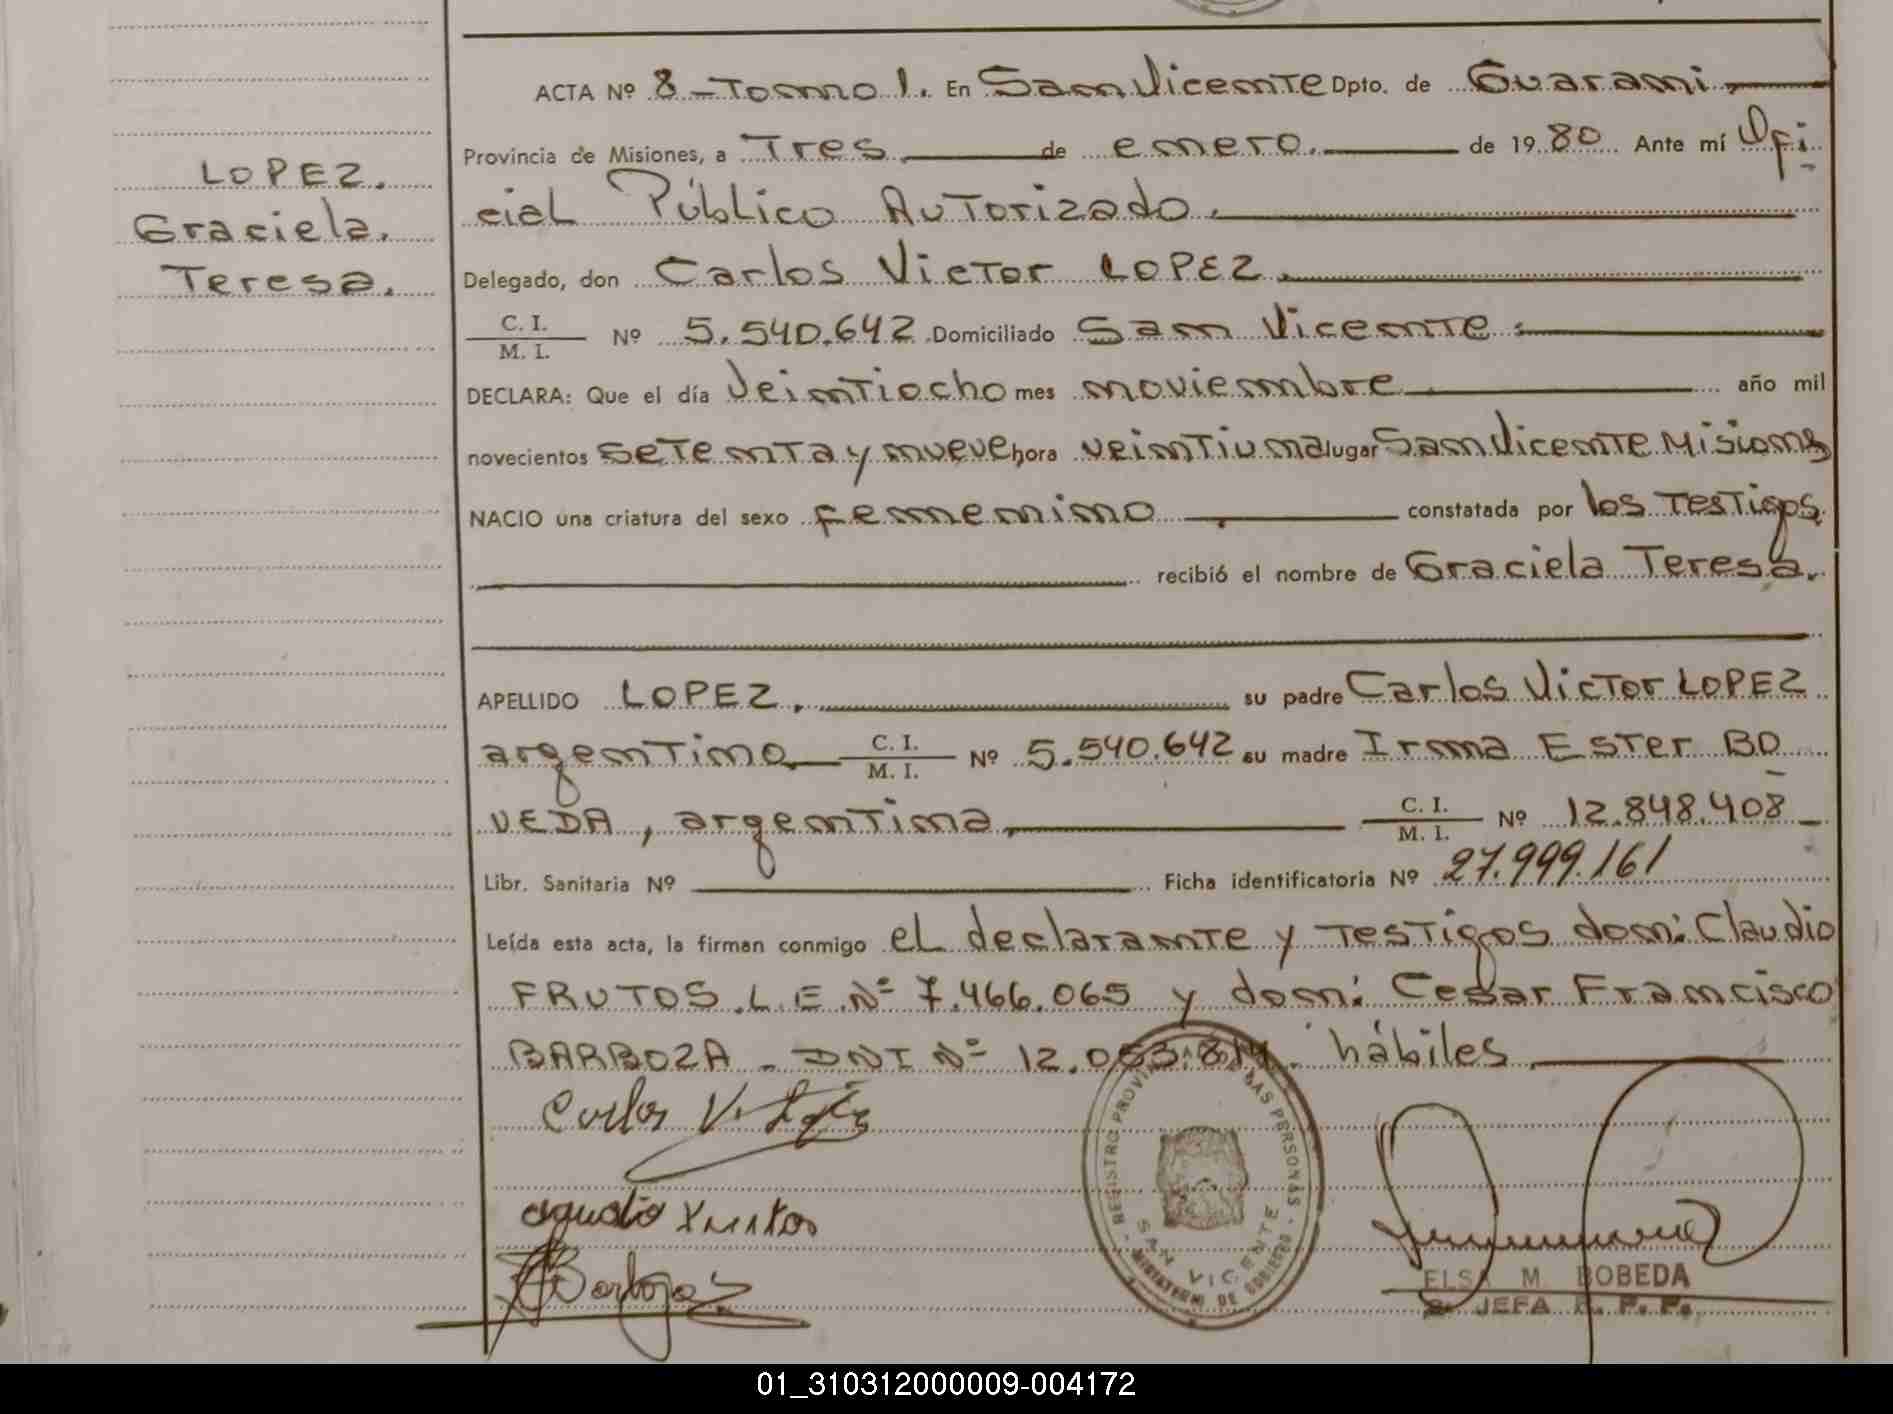 LOPEZ.
Graciela.
Teresa.
ACTA Nº 8 - Tomo 1. En San Vicente Dpto. de Guarani
Provincia de Misiones, a Tres de enero. de 1980. Ante mí Ofi
cial Público Autorizado.
Delegado, don Carlos Victor LOPEZ.
C. I.
M. I. Nº 5.540.642 Domiciliado San Vicente.
DECLARA: Que el día Veintiocho mes noviembre año mil
novecientos setenta y nueve hora veintiuna lugar San Vicente Misiones
NACIO una criatura del sexo femenino constatada por los Testigos.
recibió el nombre de Graciela Teresa.
APELLIDO LOPEZ. su padre Carlos Victor LOPEZ
argentino C. I.
M. I. Nº 5.540.642 su madre Irma Ester BO
VEDA, argentina C. I.
M. I. Nº 12.848.408
Libr. Sanitaria Nº Ficha identificatoria Nº 27.999.161
Leída esta acta, la firman conmigo el declarante y Testigos don: Claudio
FRUTOS. L.E. Nº 7.466.065 y don: Cesar Francisco
BARBOZA - DNI Nº 12.053.814. hábiles
REGISTRO PROVINCIAL DE LAS PERSONAS
SAN VICENTE
MINISTERIO DE GOBIERNO
ELSA M. BOBEDA
JEFA R. P. P.
01_310312000009-004172